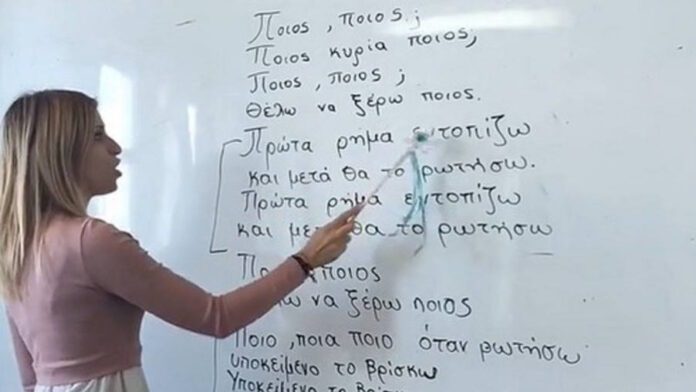 Ποιος , ποιος ;
Ποιος κυρία ποιος;
Ποιος , ποιος ;
Θέλω να ξέρω ποιος.
Πρώτα ρήμα εντοπίζω
και μετά θα το ρωτήσω.
Πρώτα ρήμα εντοπίζω
και θα το ρωτήσω
ποιος
να ξέρω ποιος
Ποιο , ποια ποιο όταν ρωτήσω
υποκείμενο το βρίσκω
Υποκείμενο το βρίσκω